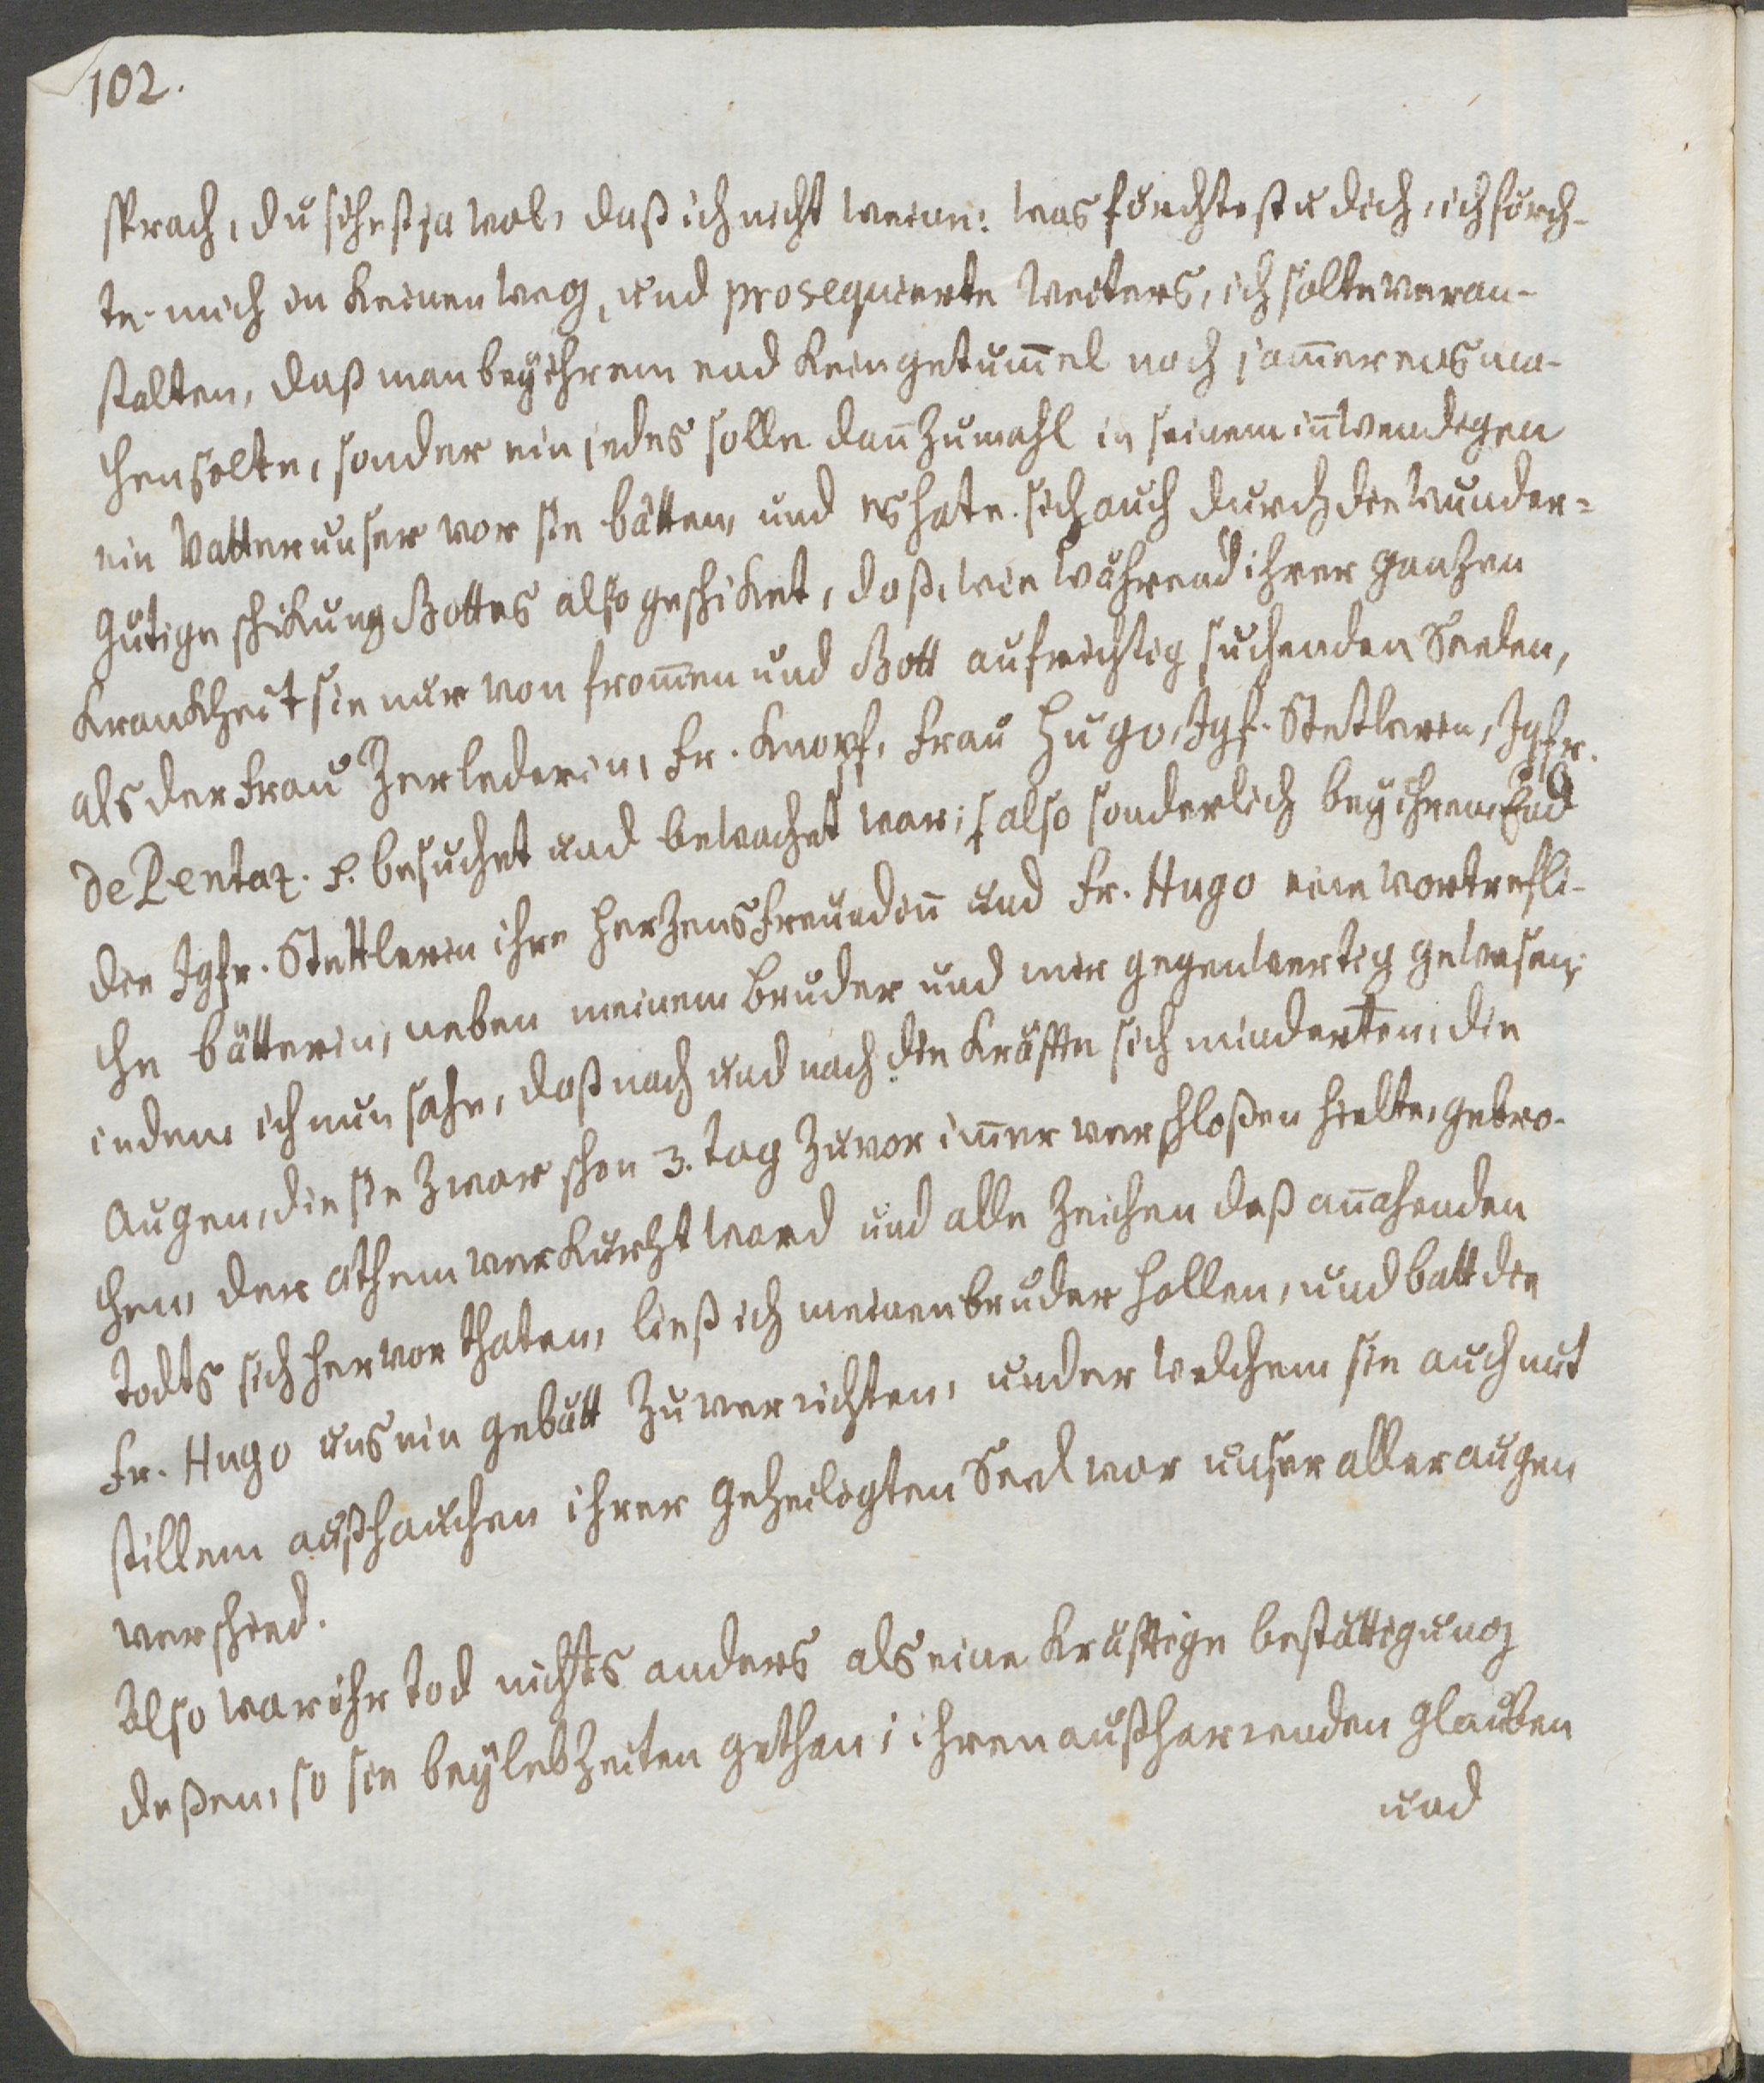 102.
sprach, du sihest ja wol, daß ich nicht weine: wasförchtest du dich, ich förch-
te mich in keinen weg, und prosequierte weiters, ich solte veran-
stalten, daß man bey ihrem end kein getum̄el noch jam̄erens ma-
chen solte, sonder ein jedes solle dan̄zumahl in seinem in̄wendigen
ein Vatter unser vor sie bätten, und es hate sich auch durch die wunder-
gütige schikung Gottes also geschiket, daß, wie während ihrer gantzen
Krankheit sie nur von from̄en und Gott aufrichtig suchenden Seelen,
als der Frau Zerlederin, Fr. Knopf, Frau Hugo, Jgf. Stetlerin, Jgfr.
de Pentaz. besuchet und bewachet war; also sonderlich bey ihrem End
die Jgfr. Stettlerin ihre Herzensfreundin̄ und Fr. Hugo eine vortrefli-
che bätterin, neben meinem bruder und mir gegenwertig gewesen;
indem ich nun sahe, daß nach und nach die Kräffte sich minderten, die
Augen, die sie zwar schon 3. tag zuvor im̄er verschloßen hielte, gebro-
chen, der athem verkurtzt ward und alle zeichen deß an̄ahenden
todts sich hervor thaten, ließ ich meinen bruder hollen, und batt die
Fr. Hugo uns ein gebätt zu verrichten, under welchem sie auch mit
stillem außhauchen ihrer geheiligten Seel vor unser aller augen
verschied.
Also war ihr tod nichts anders als eine kräfftige bestättigung
deßen, so sie bey lebzeiten gethan; ihren außharrenden glauben
und